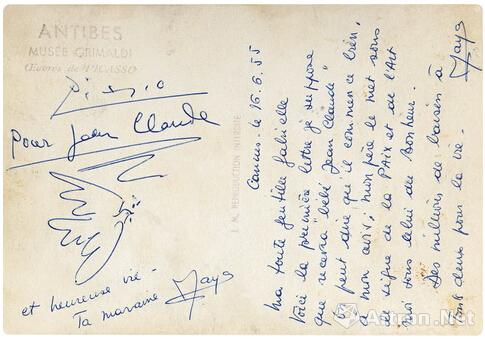 ANTIBES
MUSÉE GRIMALDI
Œuvres de PICASSO
Picasso
Pour Jean Claude
et heureuse vie -
Ta marraine Maya
REPRODUCTION INTERDITE
Cannes. le 16.6.55
Ma toute gentille Gabrielle
Voici la première lettre je suppose
que recevra bébé "Jean Claude"
On peut dire que il commence bien,
à mon avis; mon père le met sous
le signe de la PAix et de l'Art
moi sous celui du Bonheur.
Des milliers de baisers à
tous deux pour la vie -
Maya
Artron.Net